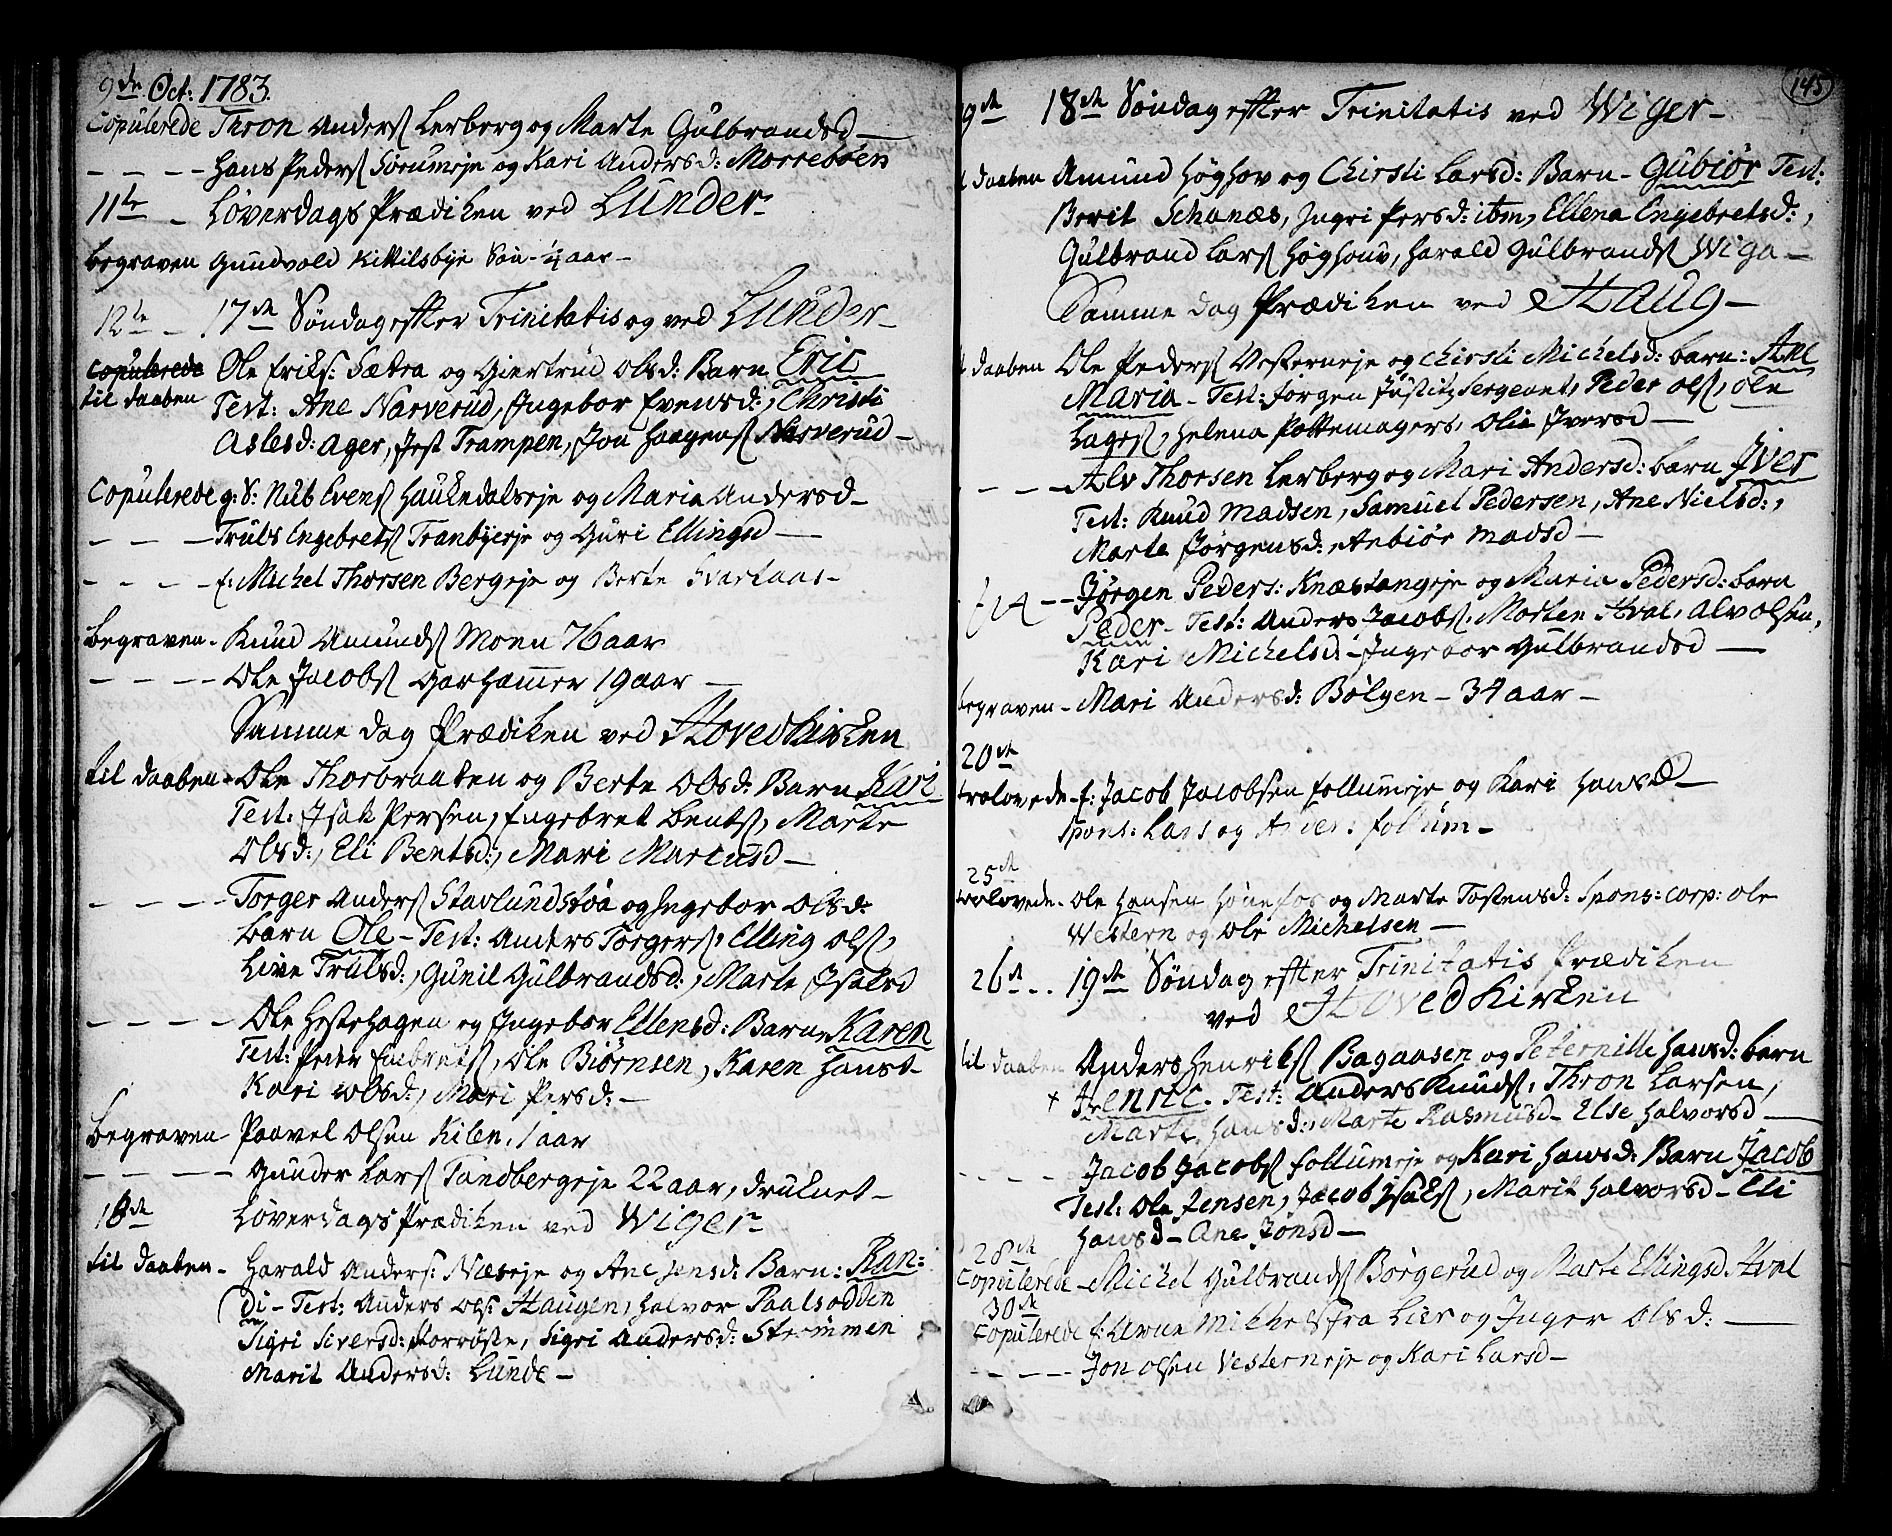 9de Oct: 1783.
Copulerede Thron Anders Lerberg og Marte Gulbrandsd
Hans Peders Sørumeje og Kari Andersd: Morreböen
11te Löverdags Prædiken ved Lunder
begraven Gundvold Kittilsbye Søn - 1/4 aar
12te 17de Søndag efter Trinitatis og ved Lunder
Copulerede Ole Eriks: Sætra og Giertrud Olsd: Barn Eric
til daaben Test: Ane Narverud, Ingebor Evensd:, Christi
Aslesd: Ager, Jest Trampen, Jon Haagens Narverud
Copulerede g: S: Nub Evens Haukedalseje og Maria Andersd
Truls Engebrets Tranbyeje og Guri Ellingsd
f: Michel Thorsen Bergeje og Berte Svartaas
begraven Knud Amunds Moen 76 aar
Ole Jacobs Garhamer 19 aar
Samme dag Prædiken ved Hovedkirken
til daaben Ole Thorbraaten og Berte Olsd: Barn Kari
Test: Isak Persen, Engebret Bents, Marte
Olsd:, Eli Bentsd:, Mari Marcusd
Torger Anders Stavlundstöa og Ingebor Olsd:
barn Ole - Test: Anders Torgers, Elling Ols,
Live Trulsd:, Gunil Gulbrandsd:, Marte Isaksd
Ole Hestehagen og Ingebor Ellensd: Barn Karen
Test: Peder Embrets, Ole Biørnsen, Karen Hansd
Kari Olsd:, Mari Persd:
begraven Paavel Olsen Kilen, 1 aar
Gunder Lars Tandbergeje 22 aar, druknet
18de Löverdags Prædiken ved Wiger
til daaben Harald Anders: Næseje og Ane Jensd: Barn: Ran:
di - Test: Anders Ols: Haugen, Halvor Paalsodden
Sigri Siversd: Storröste, Sigri Andersd: Strömmen
Marit Andersd: Lunde
145
19de 18de Søndag efter Trinitatis ved Wiger
til daaben Amund Höghov og Chirsti Larsd: Barn - Gubiör Test:
Berit Schanæs, Ingri Persd: ibm, Ellena Engebretsd:,
Gulbrand Lars Höghouv, Harald Gulbrands Wiga
Samme dag Prædiken ved Haug
til daaben Ole Peders Vesterneje og Chirsti Michelsd: barn: Ane
Maria - Test: Jørgen Justitz Sergeant, Peder Ols, Ole
Lages, Helena Pottemagers, Olia Iversd
Alv Thorsen Lerberg og Mari Andersd: barn Iver
Test: Knud Madsen, Samuel Pedersen, Ane Nielsd:,
Marte Jørgensd: Anbiör Madsd
Jørgen Peders: Knæstangeje og Maria Pedersd: barn
Peder - Test: Anders Jacobs, Morten Hval, Alv Olsen,
Kari Michelsd: Ingebor Gulbrandsd
begraven Mari Andersd: Bölgen - 34 aar
20de
trolovede f: Jacob Jacobsen Follumeje og Kari Hansd
Spons: Lars og Follum
25de
trolovede Ole Hansen Hönefos og Marte Tostensd: Spons: corp: Ole
Western og Ole Michelsen
26de 19de Søndag efter Trinitatis Prædiken
ved Hovedkirken
til daaben Anders Henriks Bagaasen og Peternille Hansd: barn
+ Henric. Test: Anders Knuds, Thron Larsen,
Marte Hansd:, Marte Rasmusd - Else Halvorsd
Jacob Jacobs Follumeje og Kari Hansd: Barn Jacob
Test: Ole Jensen, Jacob Isaks, Marit Halvorsd - Eli
Hansd - Ane Jonsd
28de
Copulerede Michel Gulbrands Börgerud og Marte Ellingsd. Hval
30de
Copulerede f: Arne Mikkels fra Lier og Inger Olsd:
Jon Olsen Vesterneje og Kari Larsd